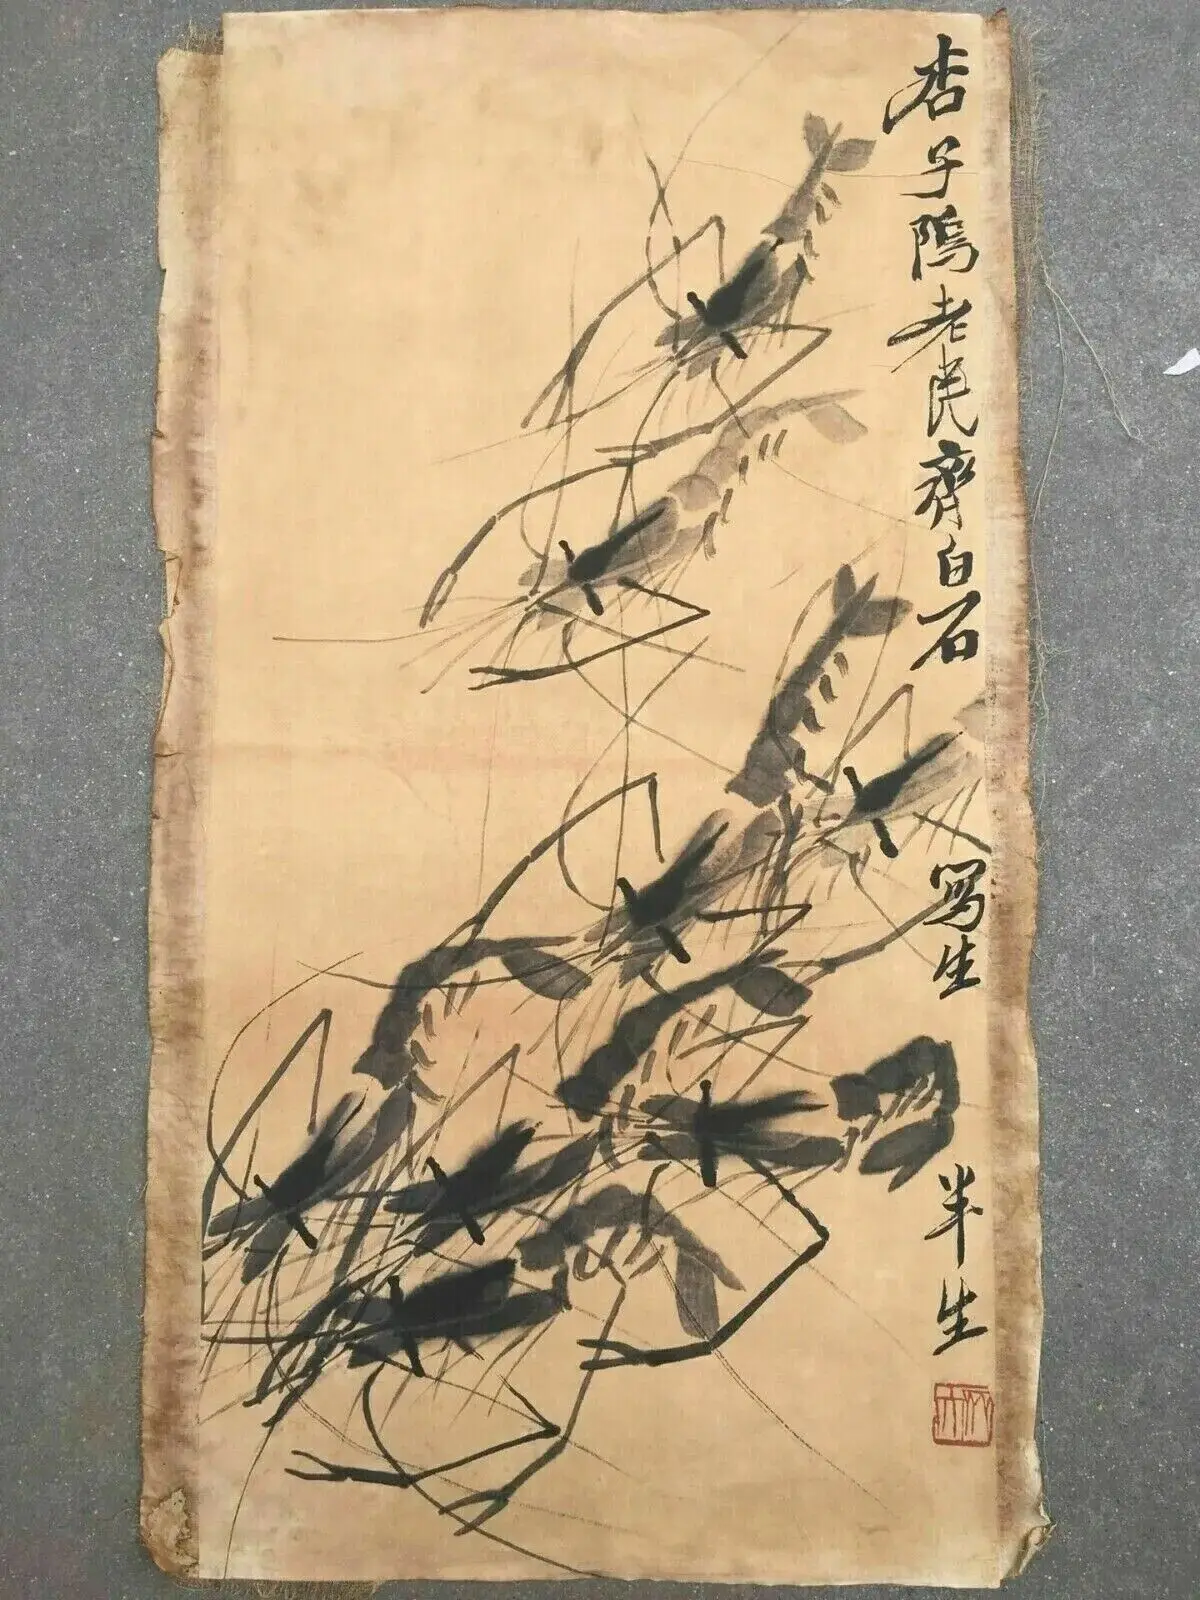 杏子隝老民齊白石
寫生
半生
木人